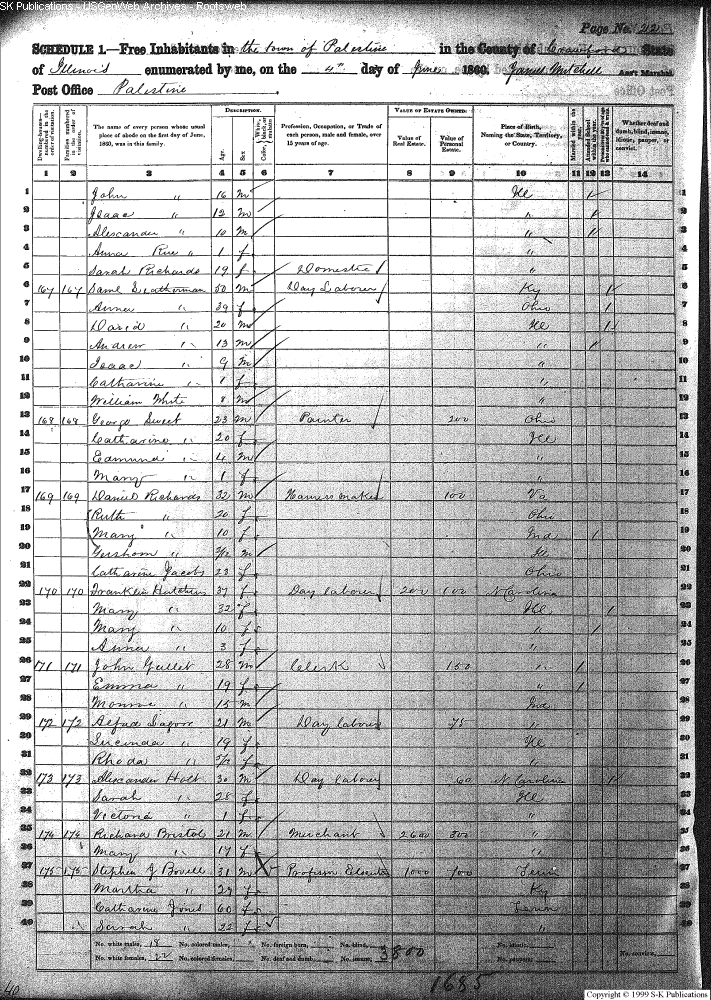 SK Publications - USGenWeb Archives - Rootsweb
Page No. 22
SCHEDULE 1.—Free Inhabitants in the town of Palestine in the County of Crawford State
of Illinois enumerated by me, on the 4th day of June 1860. Ass't Marshal
Post Office Palestine.
Dwelling-houses—numbered in the order of visitation.
Families numbered in the order of visitation.
The name of every person whose usual place of abode on the first day of June, 1860, was in this family.
DESCRIPTION.
Age.
Sex.
Color, White, black, or mulatto.
Profession, Occupation, or Trade of each person, male and female, over 15 years of age.
VALUE OF ESTATE OWNED.
Value of Real Estate.
Value of Personal Estate.
Place of Birth, Naming the State, Territory, or Country.
Married within the year.
Attended School within the year.
Whether deaf and dumb, blind, insane, idiotic, pauper, or convict.
1 2 3 4 5 6 7 8 9 10 11 12 13 14
1 John " 16 m Ill / 1
2 Isaac " 12 m " / 2
3 Alexander " 10 m " / 3
4 Anna " 1 f " 4
5 Sarah Richards 19 f Domestic " 5
6 167 167 Saml Leatherman 50 m Day Laborer Ky / 6
7 Anna " 39 f Ohio / 7
8 David " 20 m Ill / 8
9 Andrew " 13 m " / 9
10 Isaac " 9 m " 10
11 Catharine " 1 f " 11
12 William White 8 m " 12
13 168 168 George Sweet 23 m Painter 200 Ohio 13
14 Catharine " 20 f Ill 14
15 Edmund " 4 m " 15
16 Mary " 1 f " 16
17 169 169 Daniel Richards 32 m Harness maker 100 Va 17
18 Ruth " 20 f Ohio 18
19 Mary " 10 f Ind / 19
20 Gershom " m Ill 20
21 Catharine Jacobs 23 f Ohio 21
22 170 170 Franklin Hutchins 37 Day laborer 200 100 N Carolina 22
23 Mary " 32 f Ill / 23
24 Mary " 10 f " / 24
25 Anna " 3 f " 25
26 171 171 John Gullet 28 m Clerk 150 " / 26
27 Emma " 19 f " / 27
28 15 m Ind 28
29 172 172 21 m Day laborer 75 " 29
30 Lucinda " 19 f Ill 30
31 Rhoda " f " 31
32 173 173 Alexander Holt 30 m Day laborer 60 N Carolina / 32
33 Sarah " 28 f Ill 33
34 Victoria " 1 f " 34
35 174 174 Richard Bristol 21 m Merchant 2600 300 " 35
36 Mary " 17 f " 36
37 175 175 Stephen Bovell 31 m 1000 Tenn 37
38 Martha " 29 f Ky 38
39 Catharine Jones 60 f Tenn 39
40 Sarah " 22 f " 40
No. white males, 18 No. colored males, No. foreign born, No. blind, No. idiotic,
No. white females, 22 No. colored females, No. deaf and dumb, No. insane, No. paupers, No. convicts,
3800
1685
40
Copyright © 1999 S-K Publications